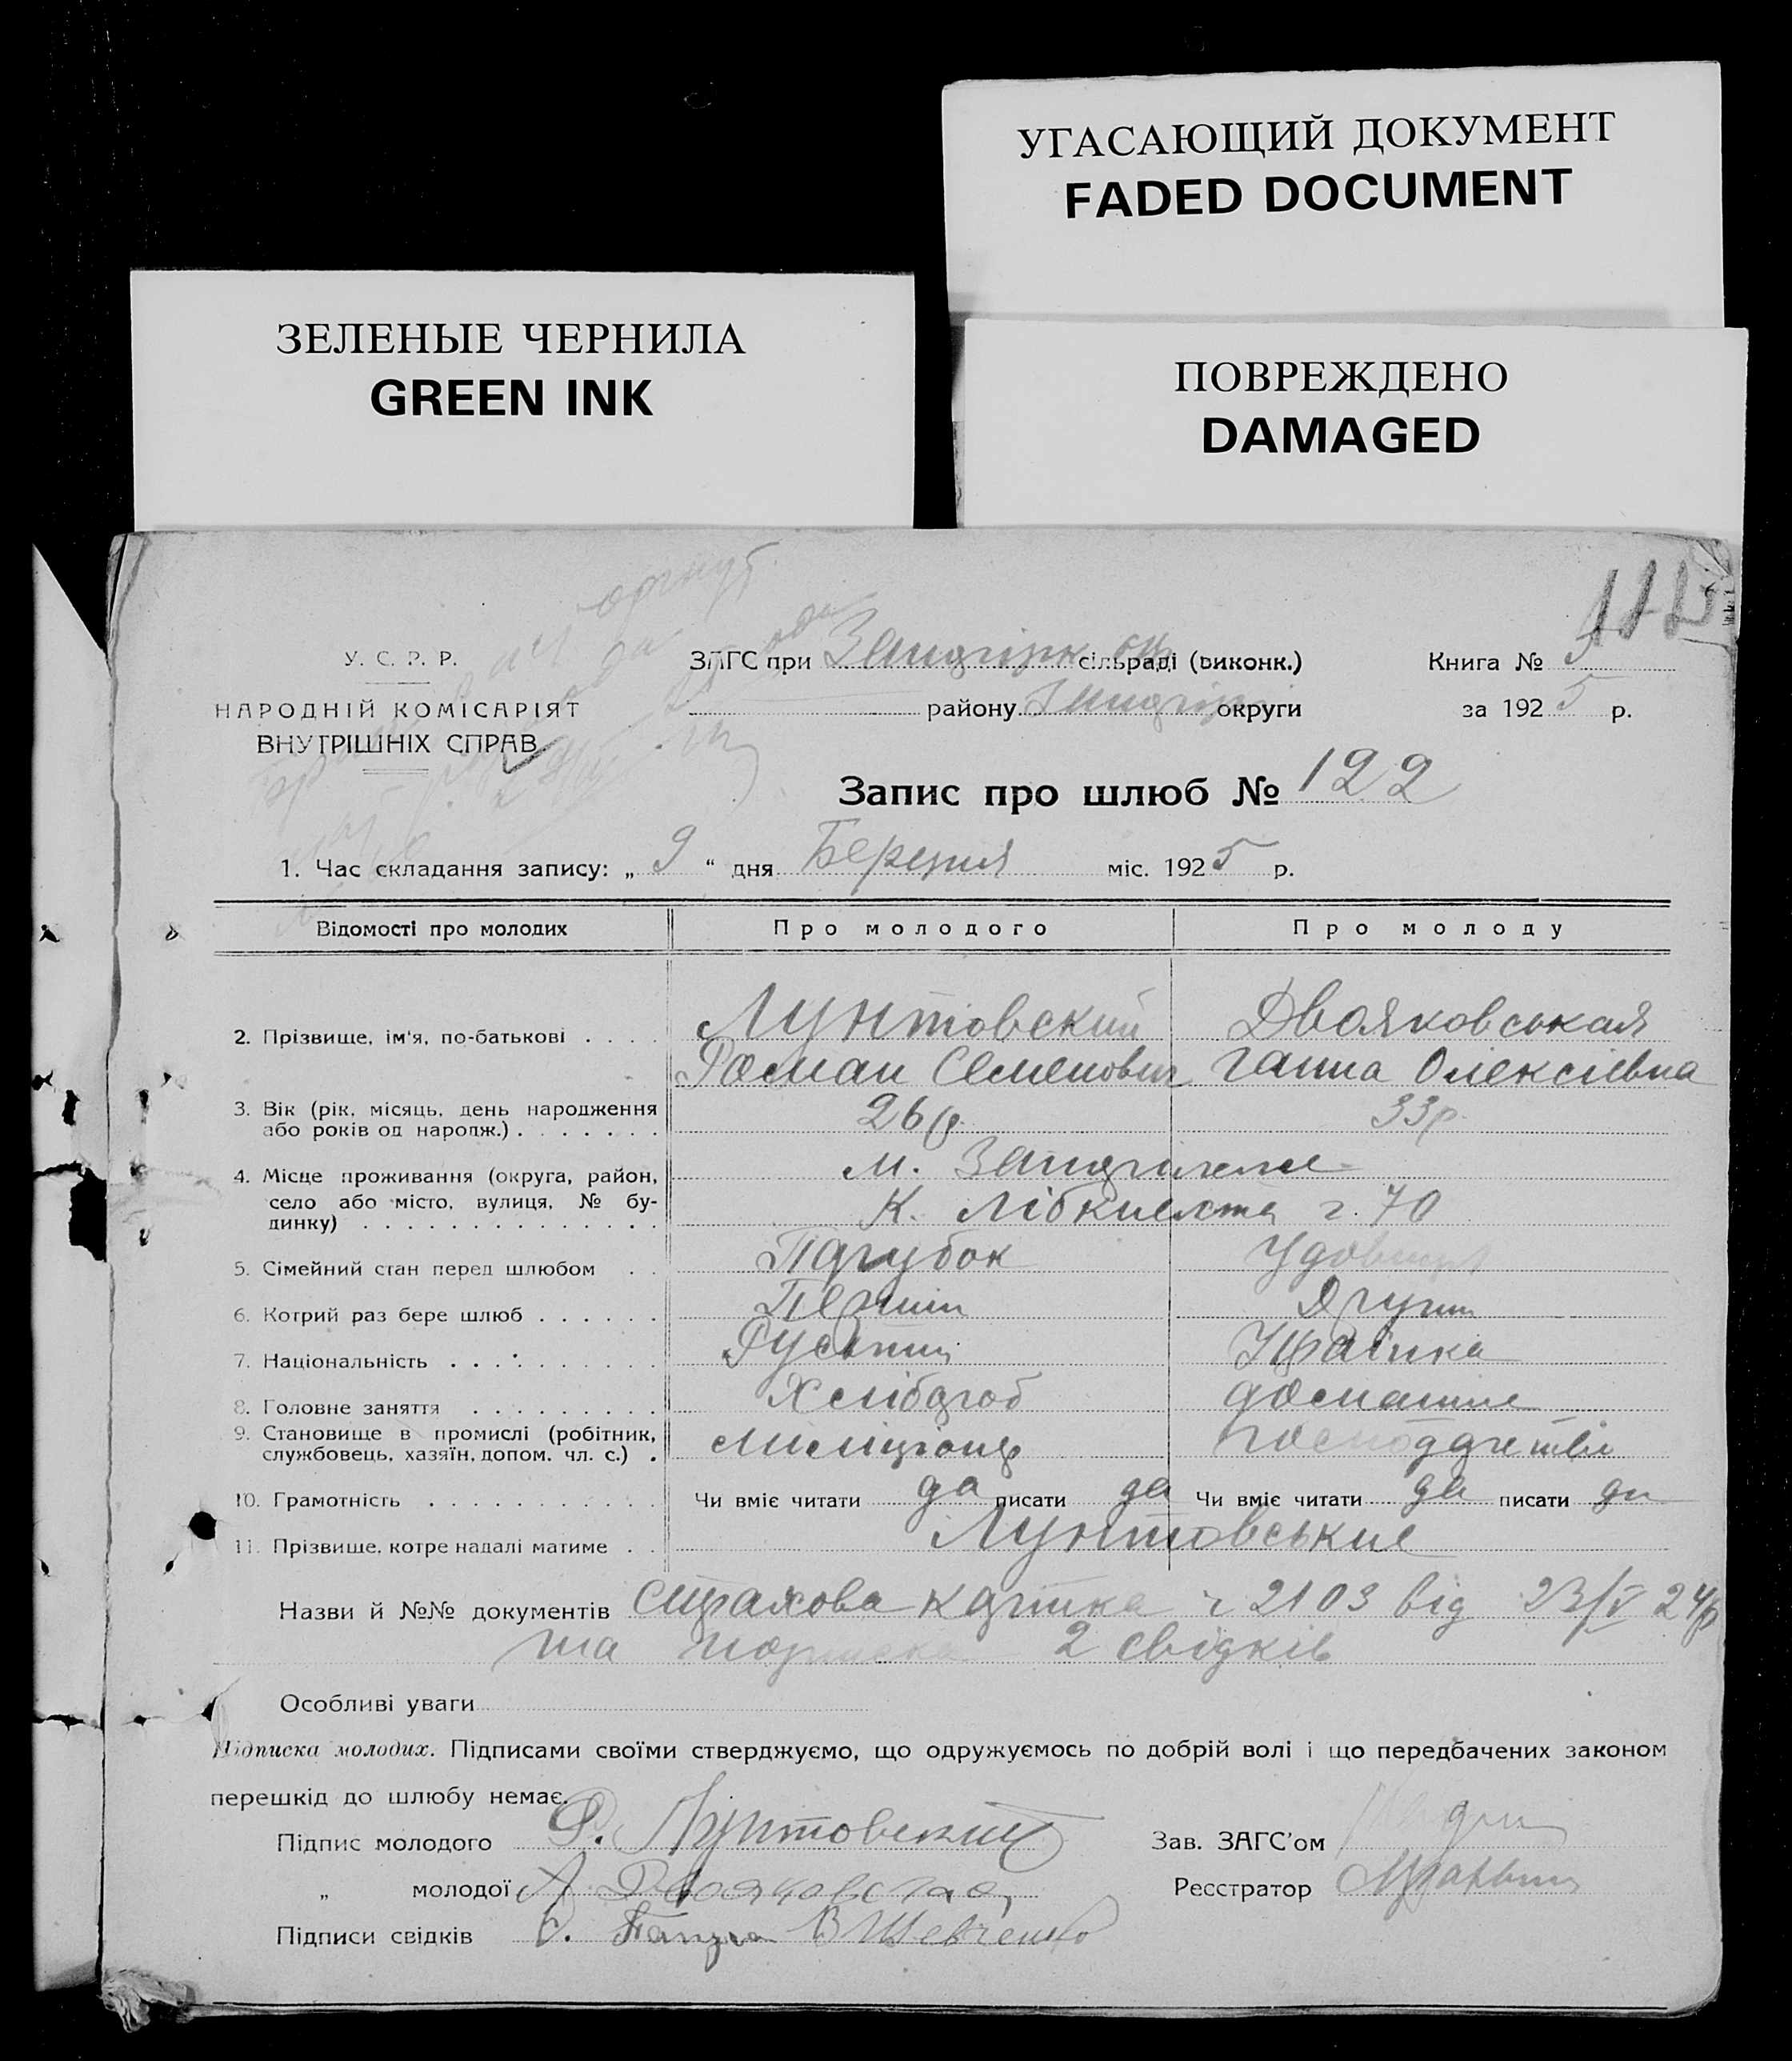 УГАСАЮЩИЙ ДОКУМЕНТ
FADED DOCUMENT
ЗЕЛЕНЫЕ ЧЕРНИЛА
GREEN INK
ПОВРЕЖДЕНО
DAMAGED
У. С. Р. Р.
НАРОДНІЙ КОМІСАРІЯТ
ВНУТРІШНІХ СПРАВ
ЗАГС при сільраді (виконк.)
району округи
Книга № 5
за 1925 р.
Запис про шлюб № 122
1. Час складання запису: „ 9 “ дня Березня міс. 1925 р.
Відомості про молодих Про молодого Про молоду
2. Прізвище, ім'я, по-батькові Лунтовский Двояковськая
Роман Семенович Ганна Олексіевна
3. Вік (рік, місяць, день народження
або років од народж.) 26 р. 33 р.
4. Місце проживання (округа, район,
село або місто, вулиця, № бу-
динку) м.
К. Лібкнехта 70
5. Сімейний стан перед шлюбом Парубок Удовиця
6. Котрий раз бере шлюб Перший Другий
7. Національність Українка
8. Головне заняття Хлібороб домашне
9. Становище в промислі (робітник,
службовець, хазяїн, допом. чл. с.) міліціонер
10. Грамотність Чи вміє читати да писати да Чи вміє читати да писати да
11. Прізвище, котре надалі матиме Лунтовськие
Назви й №№ документів Страхова картка 2103 від 23/V 24р
та 2 свідків
Особливі уваги
Підписка молодих. Підписами своїми стверджуємо, що одружуємось по добрій волі і що передбачених законом
перешкід до шлюбу немає.
Підпис молодого Р. Лунтовский
Зав. ЗАГС'ом
„ молодої А Двояковская
Реєстратор
Підписи свідків В Шевченко